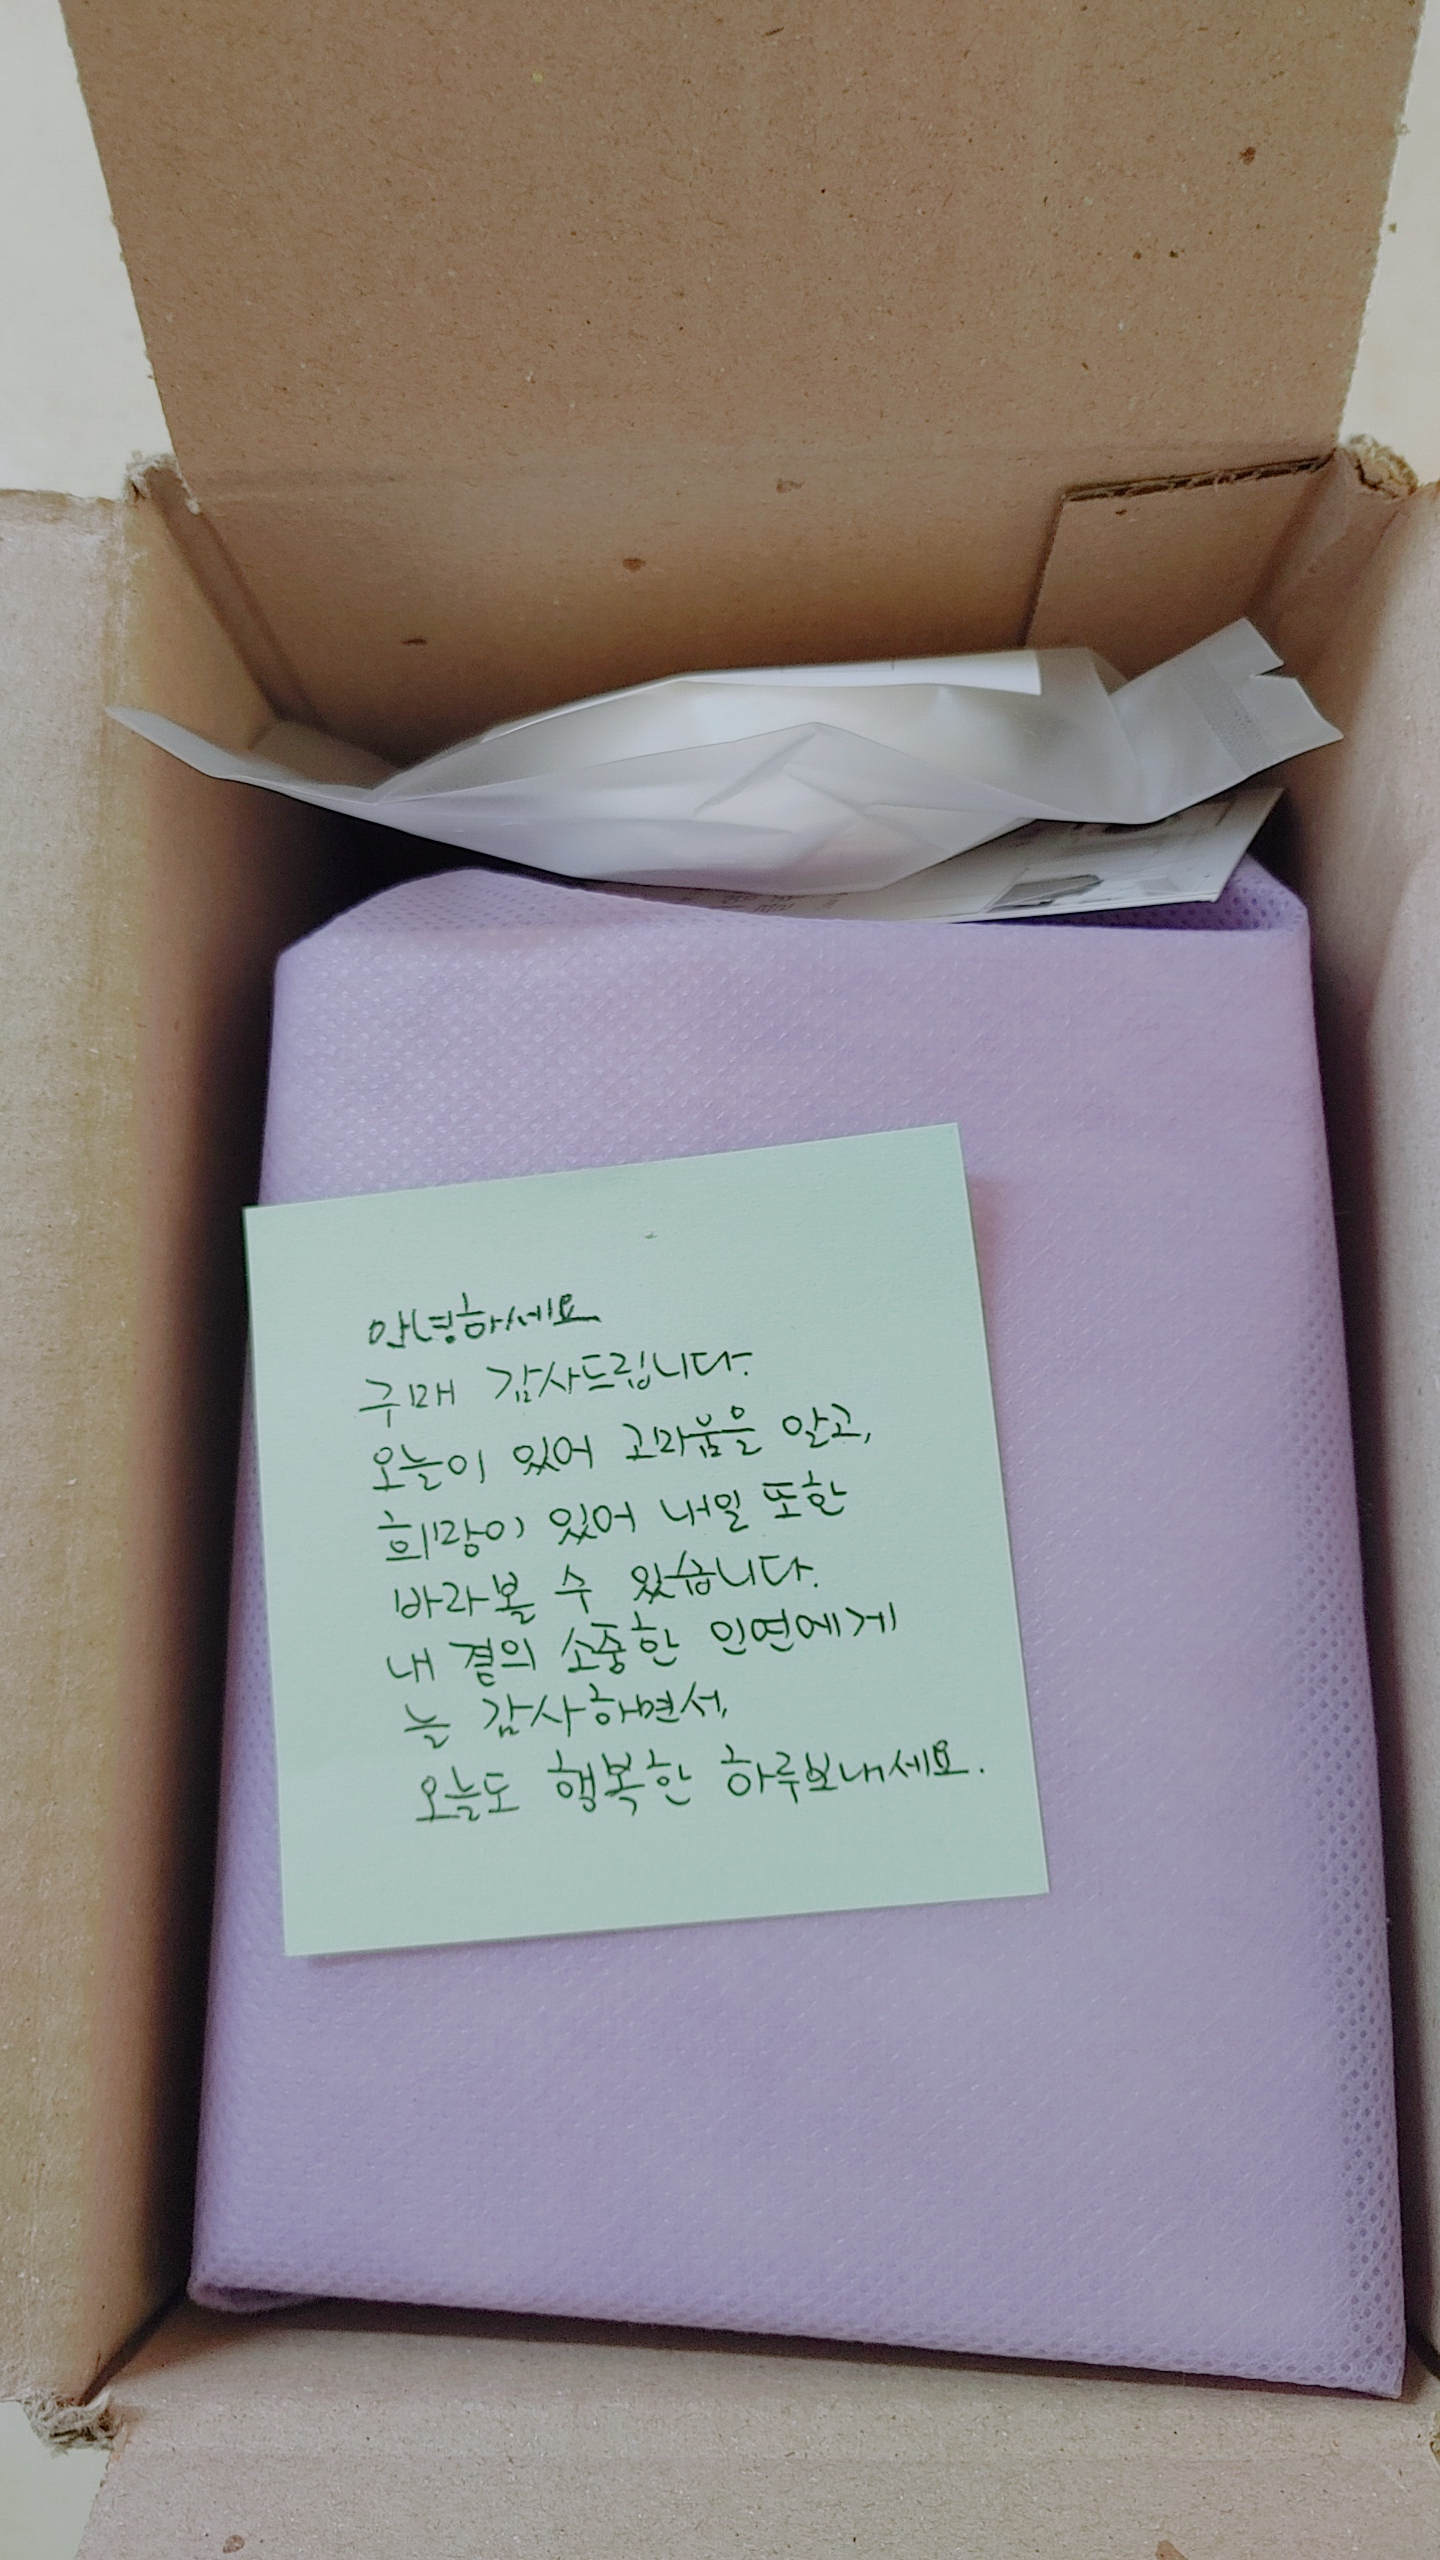 안녕하세요
구매 감사드립니다.
오늘이 있어 고마움을 알고,
희망이 있어 내일 또한
바라볼 수 있습니다.
내 곁의 소중한 인연에게
늘 감사하면서,
오늘도 행복한 하루보내세요.